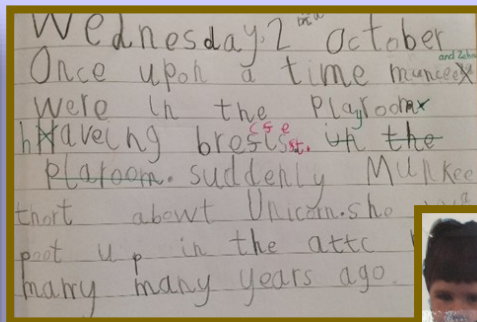 Wednesday 2nd October
and Zebra
Once upon a time muncee
were in the Playroom
haveing brecsfest. in the
Platoom. suddenly Munkee
thort abowt Unicorn. she
poot up in the attc
many many years ago.